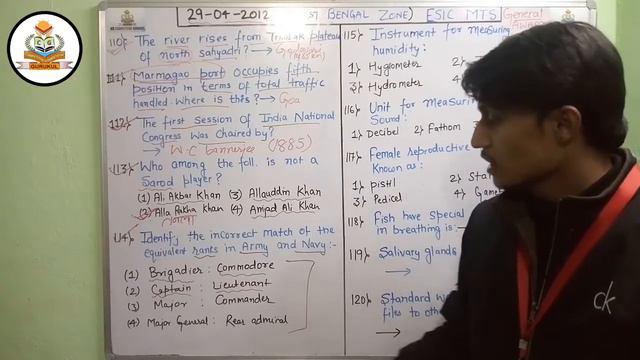 GURUKUL
29-04-2012
BENGAL ZONE) ESIC MTS
General
110) The river rises from Trimbak plateau
of north sahyadri? → Godavari
111) Marmagao port occupies fifth
position in terms of total traffic
handled. Where is this? → Goa
112) The first Session of India National
Congress was chaired by?
→ W.C bannerjee (1885)
113) Who among the foll. is not a
Sarod player?
(1) Ali Akbar Khan (3) Allauddin Khan
(2) Alla Rakha Khan (4) Amjad Ali Khan
114) Identify the incorrect match of the
equivalent ranks in Army and Navy:-
(1) Brigadier : Commodore
(2) Captain : Lieutenant
(3) Major : Commander
(4) Major General : Rear admiral
115) Instrument for measuring
humidity:
1) Hyglometer 2)
3) Hydrometer 4
116) Unit for measuring
Sound:
1) Decibel 2) Fathom
117) Female reproductive
known as:
1) pistil 2) Sta
3) Pedicel 4) Gamet
118) Fish have special
in breathing is:-
119) Salivary glands
→
120) Standard w
files to othe
→
ck